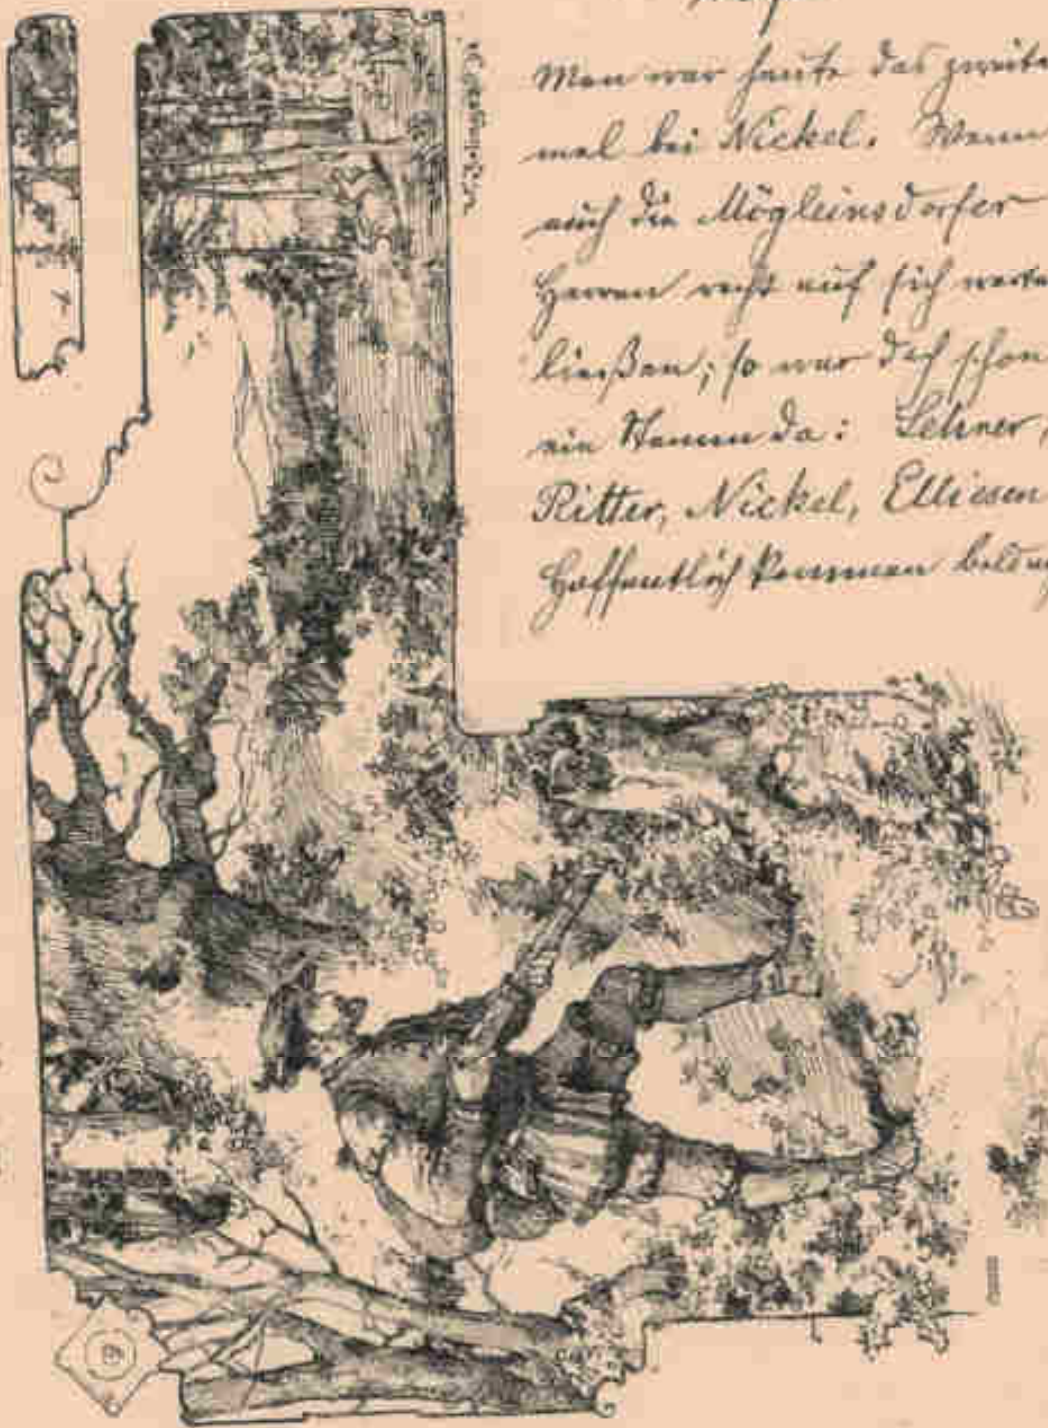 Man war heute das zweite
mal bei Nickel. Wenn
auch die Mögleinsdorfer
Herren recht auf sich warte
ließen; so war doch schon
ein Stamm da: Lehner,
Ritter, Nickel, Elliesen
Hoffentlich kommen